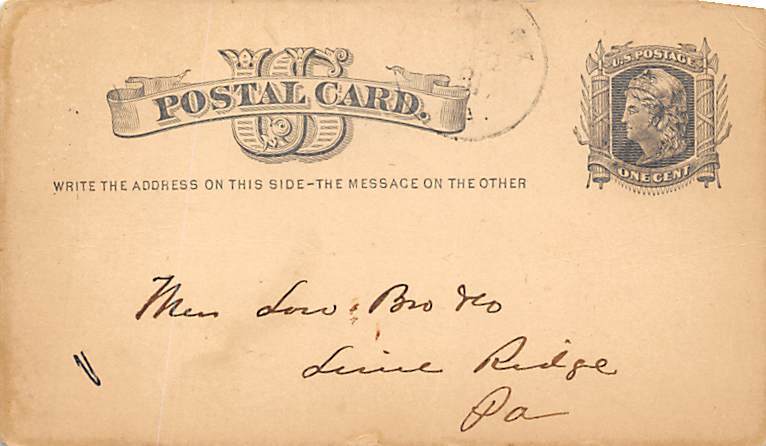 U.S. POSTAGE
US
POSTAL CARD.
ONE CENT
WRITE THE ADDRESS ON THIS SIDE–THE MESSAGE ON THE OTHER
Low Bro & Co
Lime Ridge
Pa